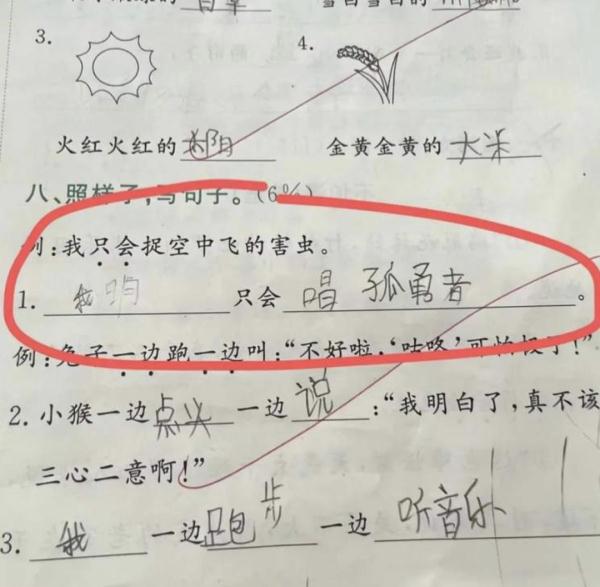 3. 4.
火红火红的太阳 金黄金黄的大米
八、照样子,写句子。(6%)
例:我只会捉空中飞的害虫。
1. 只会唱 孤勇者。
例:兔子一边跑一边叫:“不好啦,‘咕咚’可怕极了!”
2.小猴一边点头一边说:“我明白了,真不该
三心二意啊!”
3. 我一边跑步一边听音乐